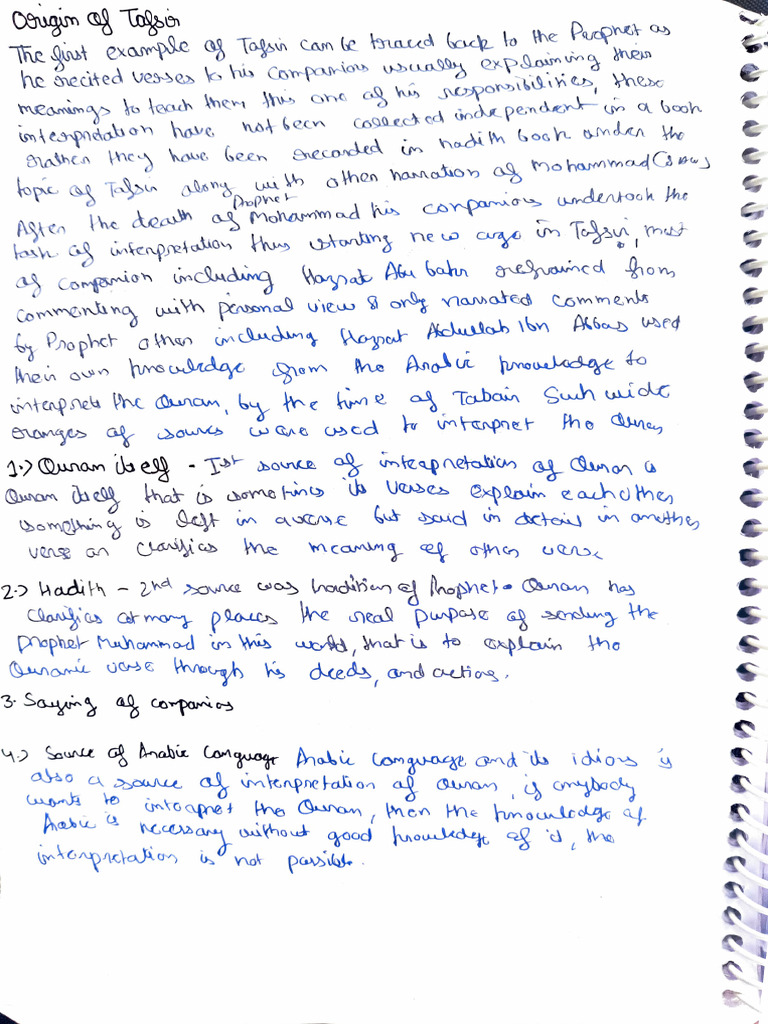 Origin of Tafsir
The first example of Tafsir can be traced back to the Prophet as
he recited verses to his companions usually explaining their
meanings to teach them this one of his responsibilities, these
interpretation have not been collected independent in a book
rather they have been recorded in hadith book under the
topic of Tafsir along with other narration of Mohammad (SAW)
Prophet
After the death of Mohammad his companions undertook the
task of interpretation thus starting new age in Tafsir, most
of companion including Hazrat Abu bakr refrained from
commenting with personal view & only narrated comments
by Prophet other including Hazrat Abdullah Ibn Abbas used
their own knowledge from the Arabic knowledge to
interpret the Quran, by the time of Tabain Such wide
ranges of source were used to interpret the Quran
1.) Quran itself - Ist source of interpretation of Quran is
Quran itself that is sometimes its verses explain each other
something is left in a verse but said in detail in another
verse or clarifies the meaning of other verse
2.) Hadith - 2nd source was hadition of Prophet. Quran has
clarifies at many places the real purpose of sending the
prophet Muhammad in this world, that is to explain the
Quranic verse through his deeds, and actions.
3. Saying of companions
4.) Source of Arabic Language Arabic language and its idioms is
also a source of interpretation of Quran, if anybody
wants to interpret the Quran, then the knowledge of
Arabic is necessary without good knowledge of it, the
interpretation is not possible.